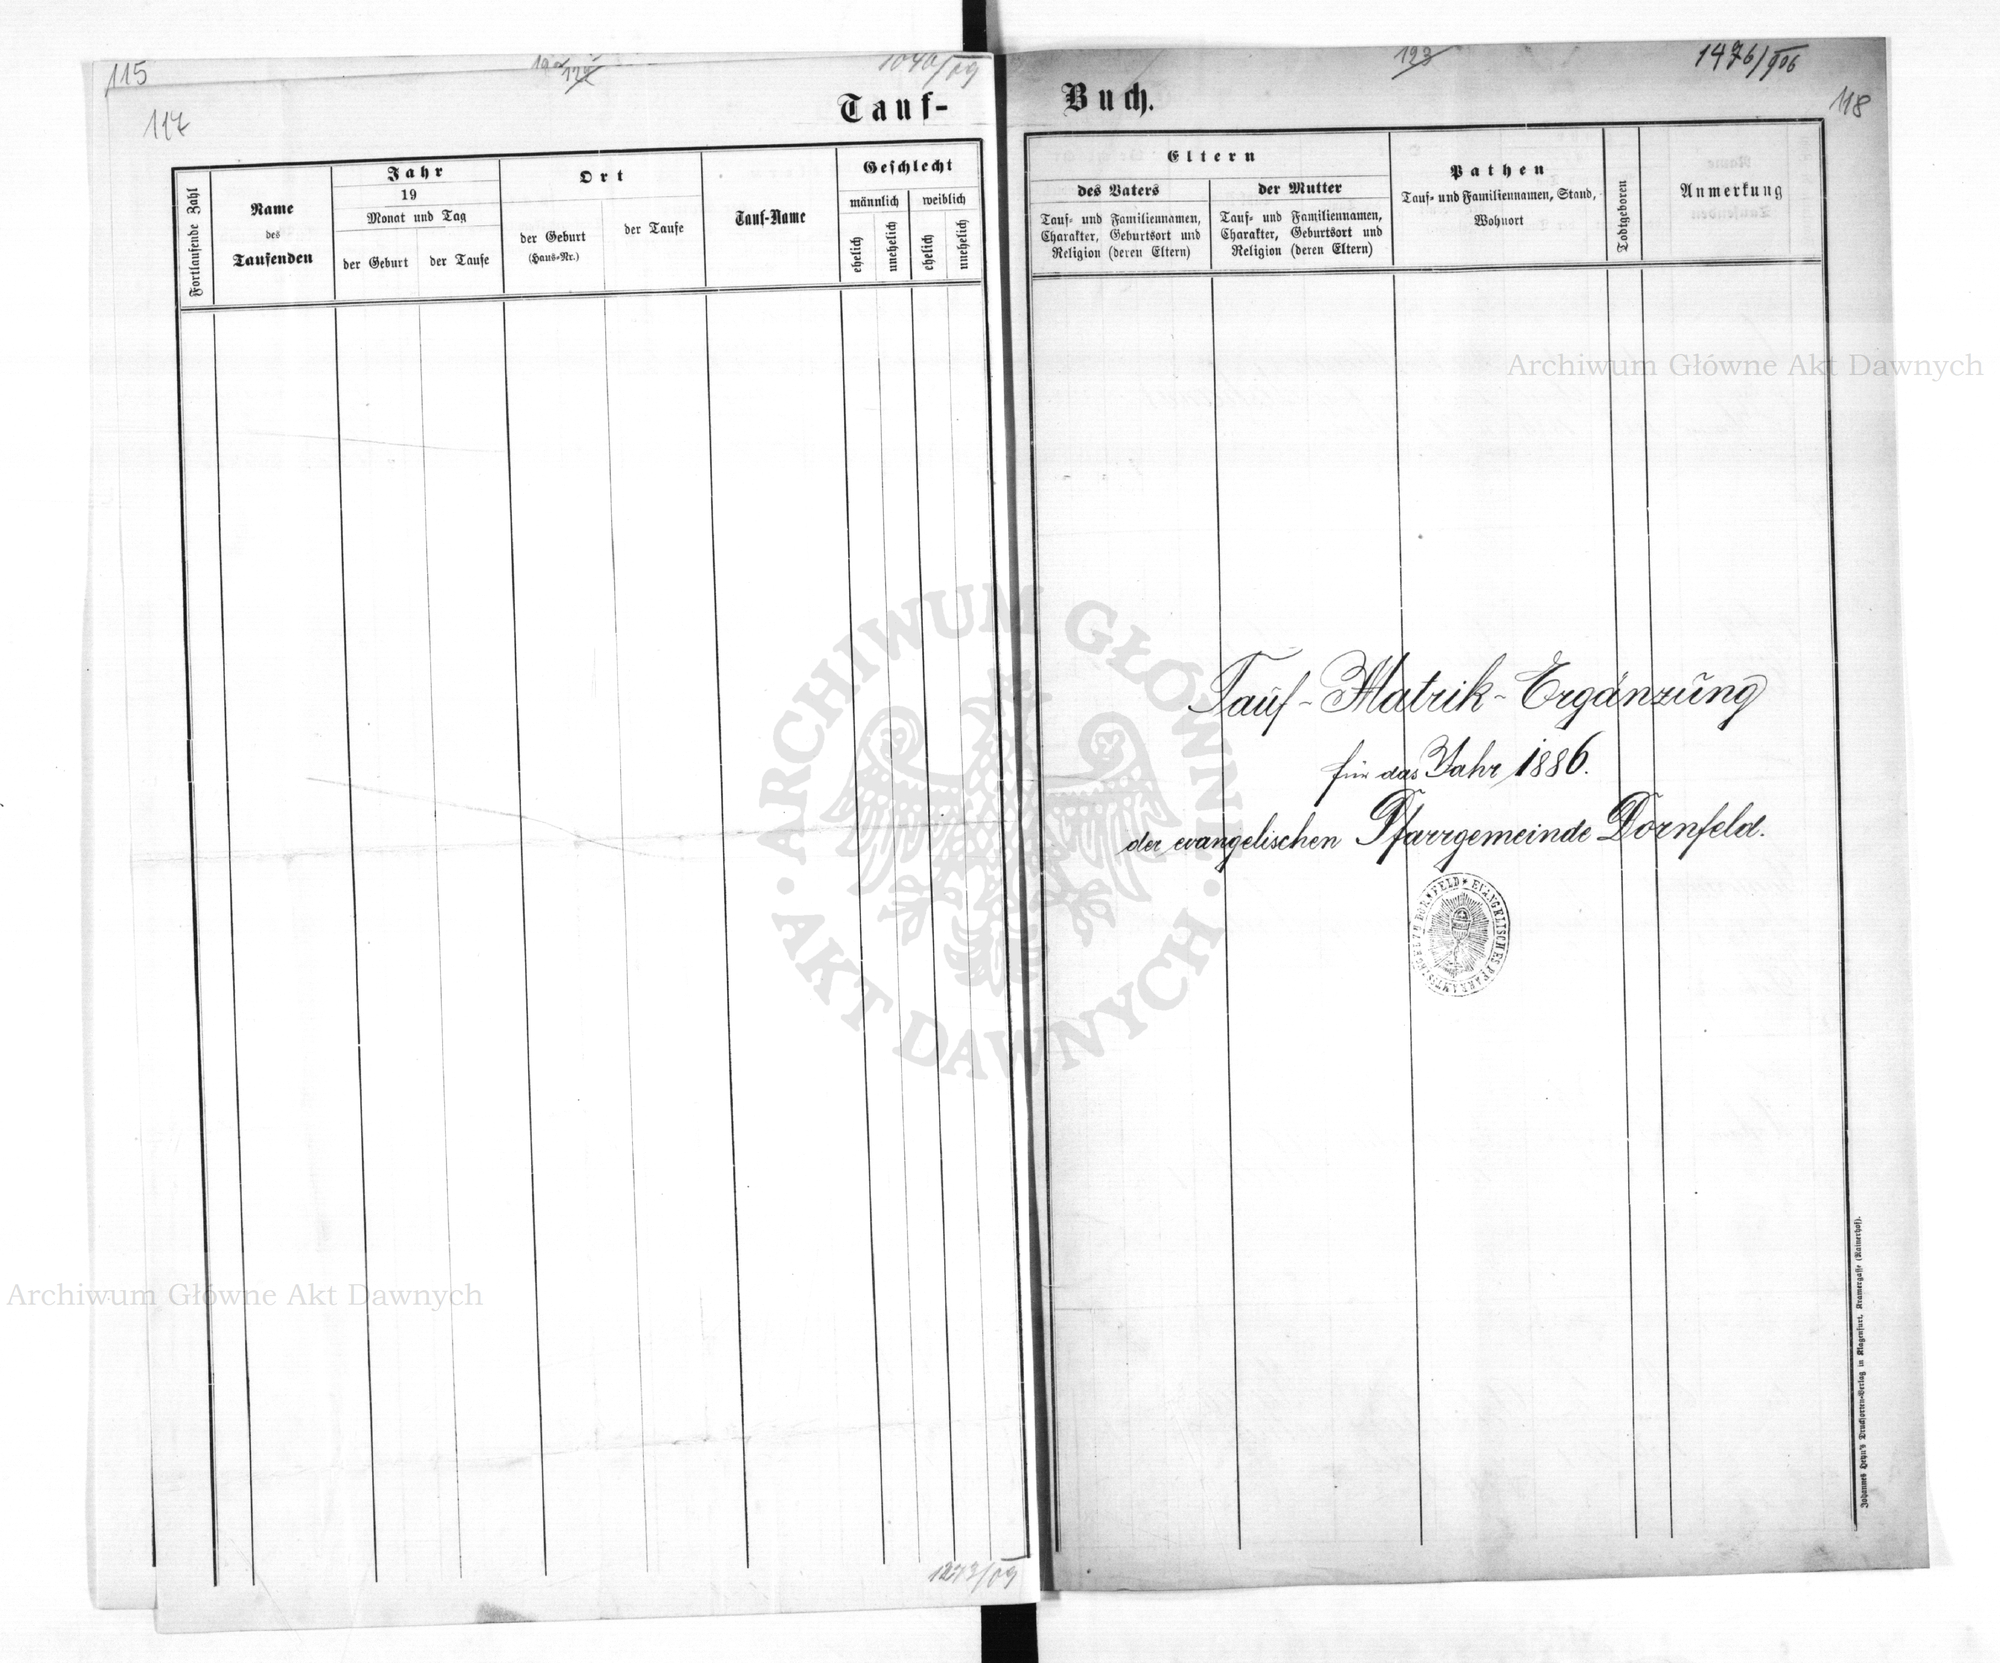 115
117
Tauf-
Fortlaufende Zahl
Name
des
Taufenden
Jahr
19
Monat und Tag
der Geburt
der Taufe
Ort
der Geburt
(Haus-Nr.)
der Taufe
Tauf-Name
Geschlecht
männlich
weiblich
ehelich
unehelich
ehelich
unehelich
1273/09
123
1476/906
118
Buch.
Eltern
des Vaters
Tauf- und Familiennamen,
Charakter, Geburtsort und
Religion (deren Eltern)
der Mutter
Tauf- und Familiennamen,
Charakter, Geburtsort und
Religion (deren Eltern)
Pathen
Tauf- und Familiennamen, Stand,
Wohnort
Todtgeboren
Anmerkung
Tauf-Matrik-Ergänzung
für das Jahr 1886.
der evangelischen Pfarrgemeinde Dornfeld.
EVANGELISCHES PFARRAMTSSIEGEL ZU DORNFELD
Johannes Heyn's Drucksorten-Verlag in Klagenfurt, Kramergasse (Rainerhof).
Archiwum Główne Akt Dawnych
ARCHIWUM GŁÓWNE AKT DAWNYCH
Archiwum Główne Akt Dawnych